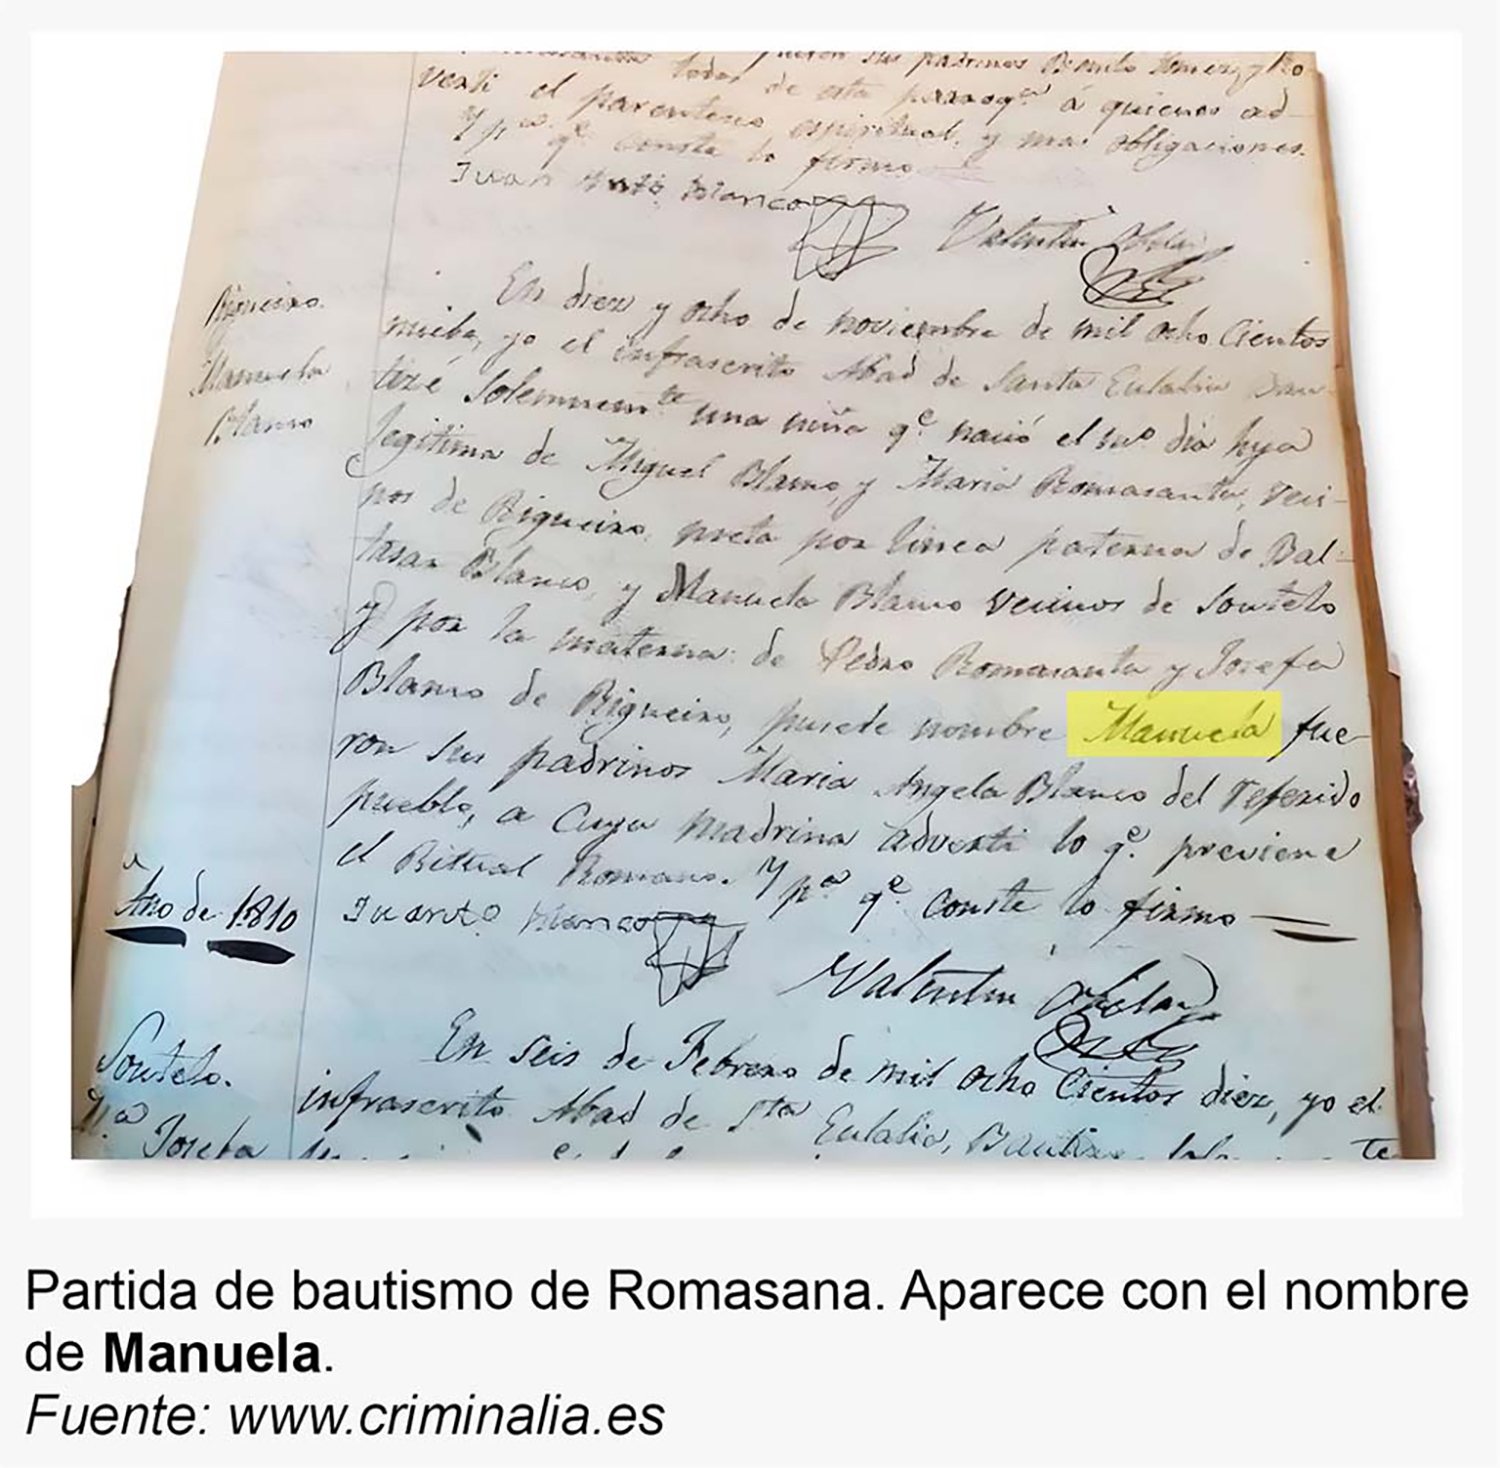 fueron sus padrinos Benito
todos de esta parroq.a á quienes ad-
vertí el parentesco espiritual, y mas obligaciones.
Y p.a q.e conste lo firmo
Juan Blanco
Valentin
En diez y ocho de noviembre de mil ocho Cientos
nuebe, yo el infrascrito Abad de Santa Eulalia Bau-
tizé Solemnem.te una niña q.e nació el mo dia hija
legitima de Miguel Blanco, y Maria Romasanta, Veci-
nos de Rigueiro, nieta por linea paterna de Bal-
tasar Blanco, y Manuela Blanco Vecinos de Soutelo
y por la materna de Pedro Romasanta y Josefa
Blanco de Rigueiro, pusele nombre Manuela fue-
ron sus padrinos Maria Angela Blanco del referido
pueblo, a Cuya madrina advertí lo q.e previene
el Ritual Romano. Y p.a q.e conste lo firmo
Blanco
Valentin
Rigueiro.
Manuela
Blanco
Año de 1810
En seis de Febrero de mil ocho Cientos diez, yo el
infrascrito Abad de Sta Eulalia,
Soutelo.
M.a Josefa
Partida de bautismo de Romasana. Aparece con el nombre
de Manuela.
Fuente: www.criminalia.es